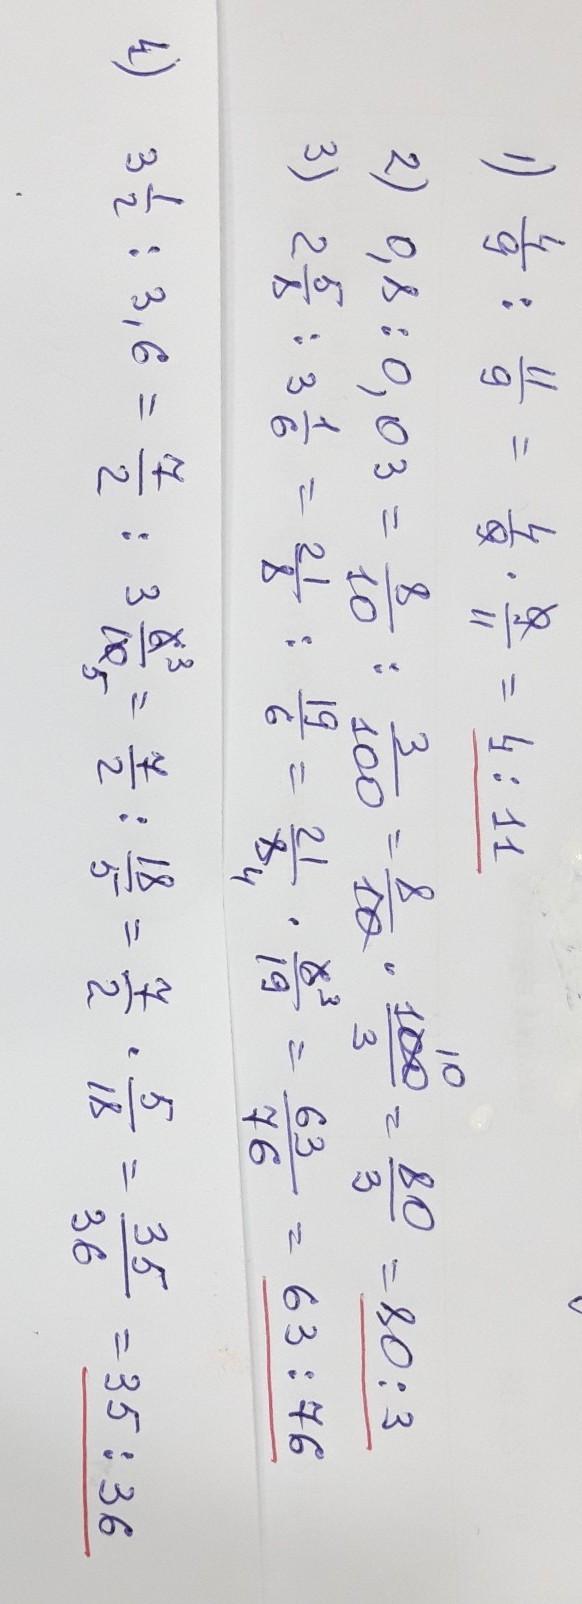 1) 4/9 : 11/9 = 4/9 · 9/11 = 4 : 11
2) 0,8 : 0,03 = 8/10 : 3/100 = 8/10 · 100/3 10 = 80/3 = 80 : 3
3) 2 5/8 : 3 1/6 = 21/8 : 19/6 = 21/8 4 · 6/19 3 = 63/76 = 63 : 76
4) 3 1/2 : 3,6 = 7/2 : 3 6/10 3 5 = 7/2 : 18/5 = 7/2 · 5/18 = 35/36 = 35 : 36